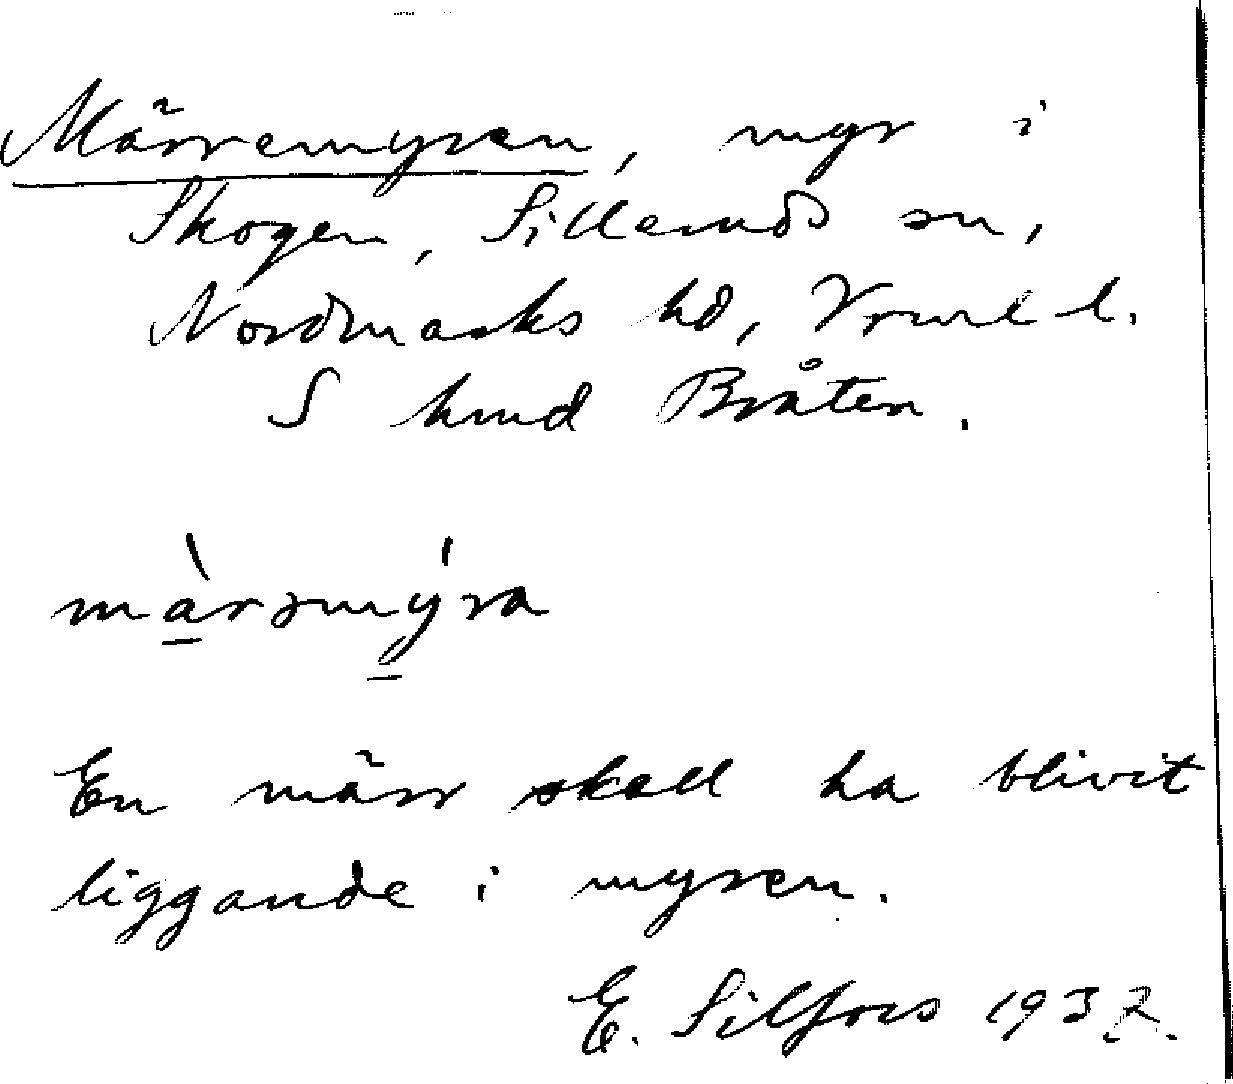 Märremyren, myr i
Skogen, Silleruds sn,
Nordmarks hd, Vrml l.
S hmd Bråten.
màrəmýra
En märr skall ha blivit
liggande i myren.
E. Silfors 1937.